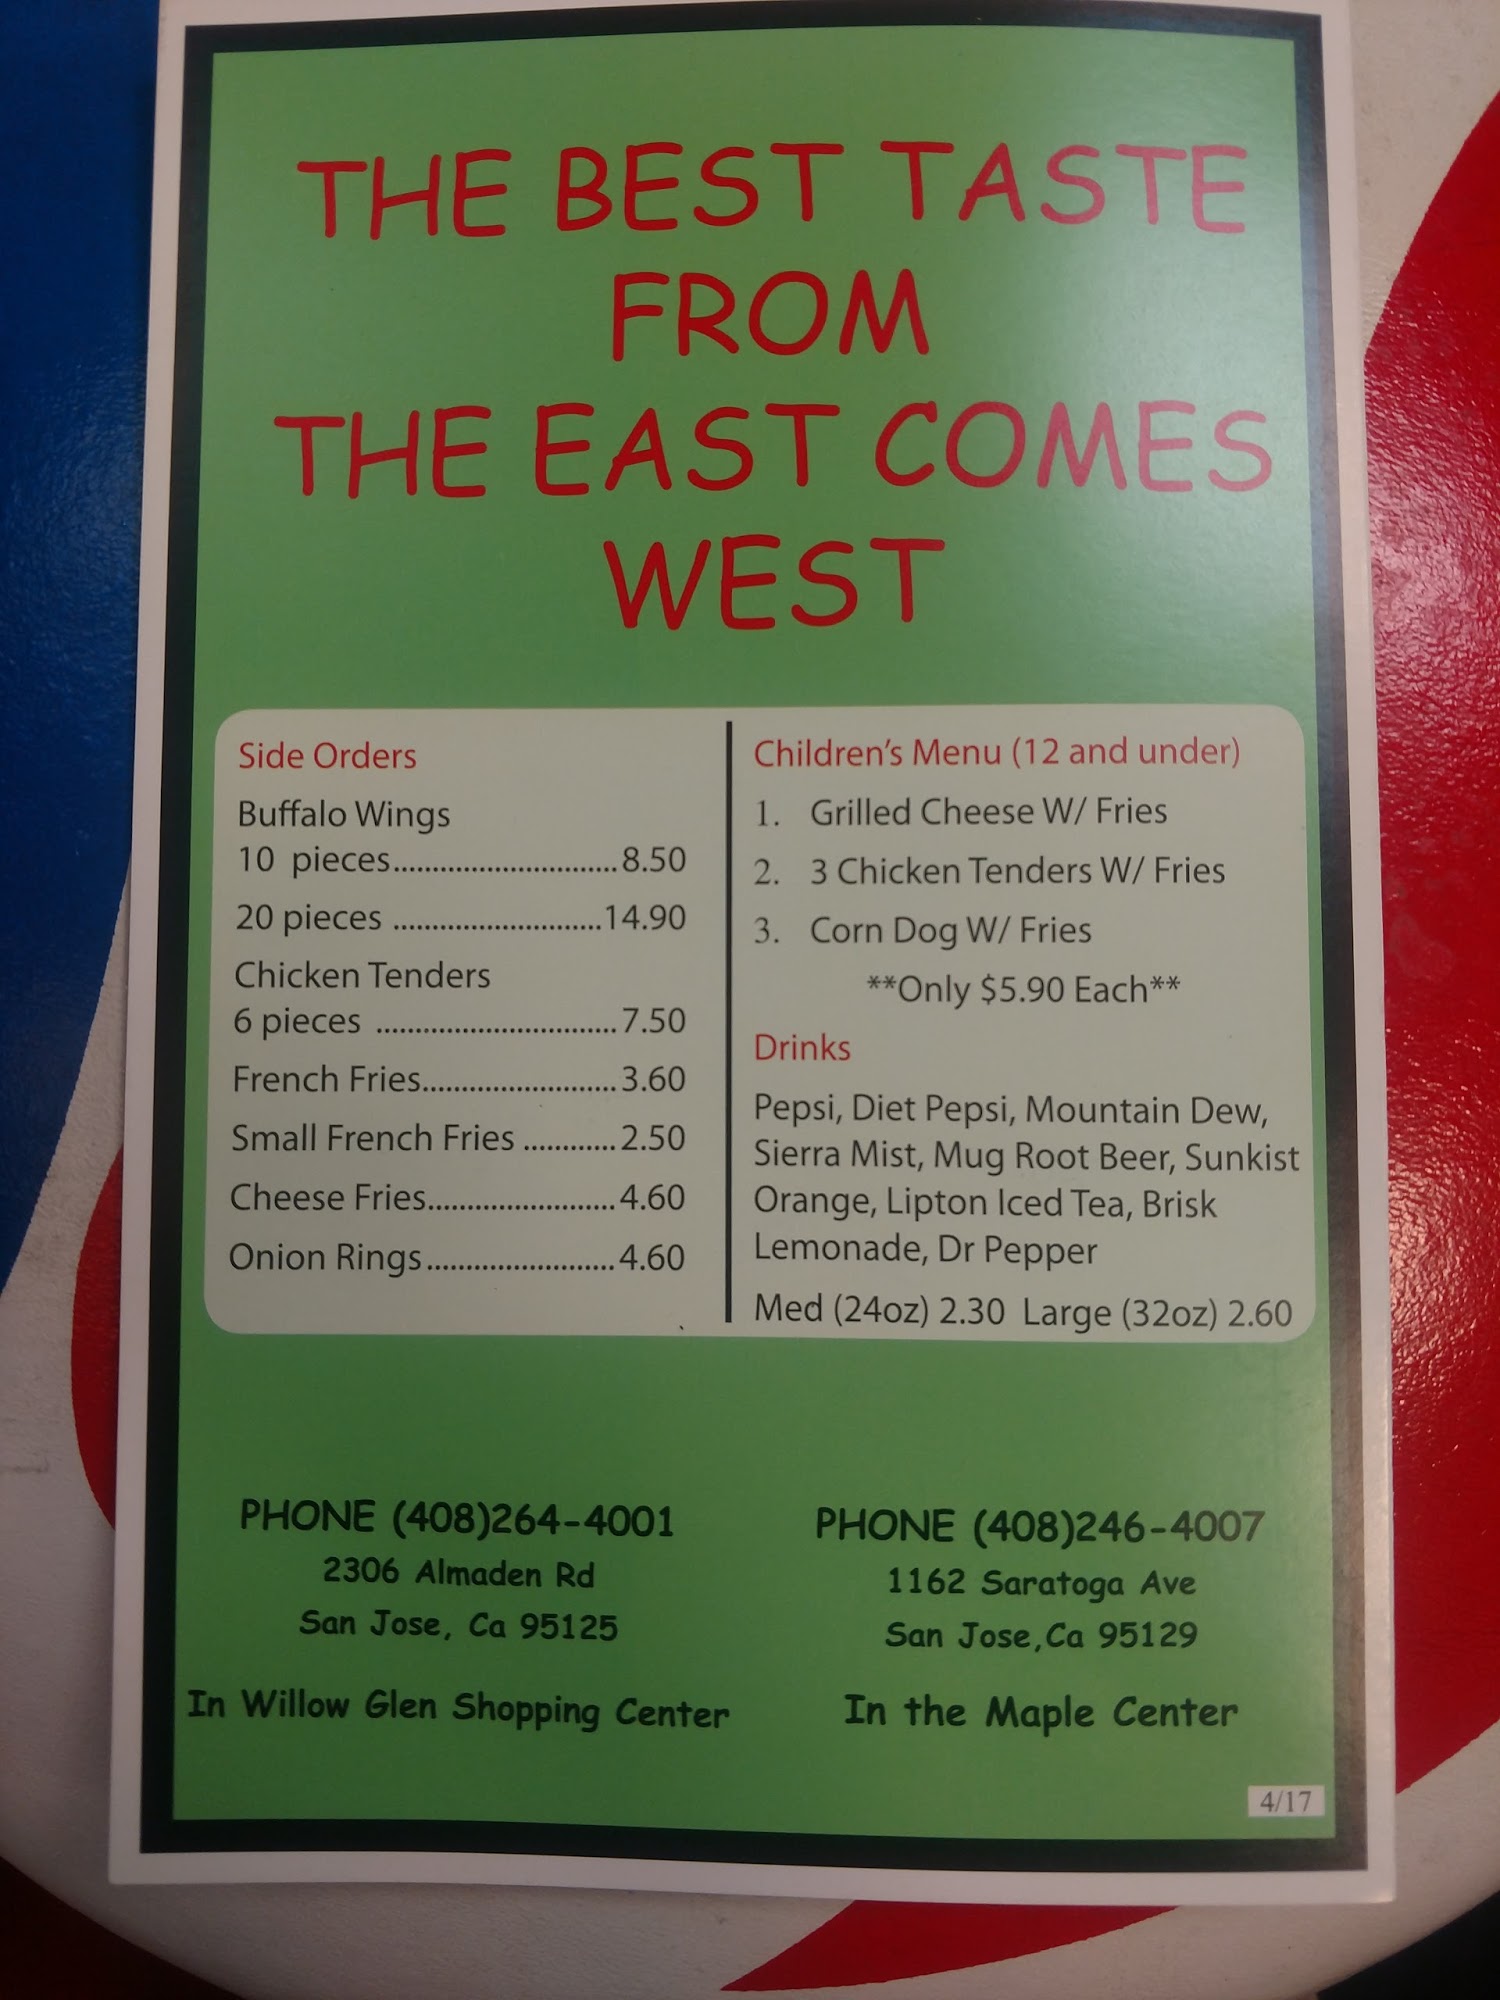 THE BEST TASTE
FROM
THE EAST COMES
WEST
Side Orders
Buffalo Wings
10 pieces............................8.50
20 pieces ..........................14.90
Chicken Tenders
6 pieces ..............................7.50
French Fries........................3.60
Small French Fries ............2.50
Cheese Fries........................4.60
Onion Rings........................4.60
Children's Menu (12 and under)
1. Grilled Cheese W/ Fries
2. 3 Chicken Tenders W/ Fries
3. Corn Dog W/ Fries
**Only $5.90 Each**
Drinks
Pepsi, Diet Pepsi, Mountain Dew,
Sierra Mist, Mug Root Beer, Sunkist
Orange, Lipton Iced Tea, Brisk
Lemonade, Dr Pepper
Med (24oz) 2.30 Large (32oz) 2.60
PHONE (408)264-4001
2306 Almaden Rd
San Jose, Ca 95125
In Willow Glen Shopping Center
PHONE (408)246-4007
1162 Saratoga Ave
San Jose,Ca 95129
In the Maple Center
4/17